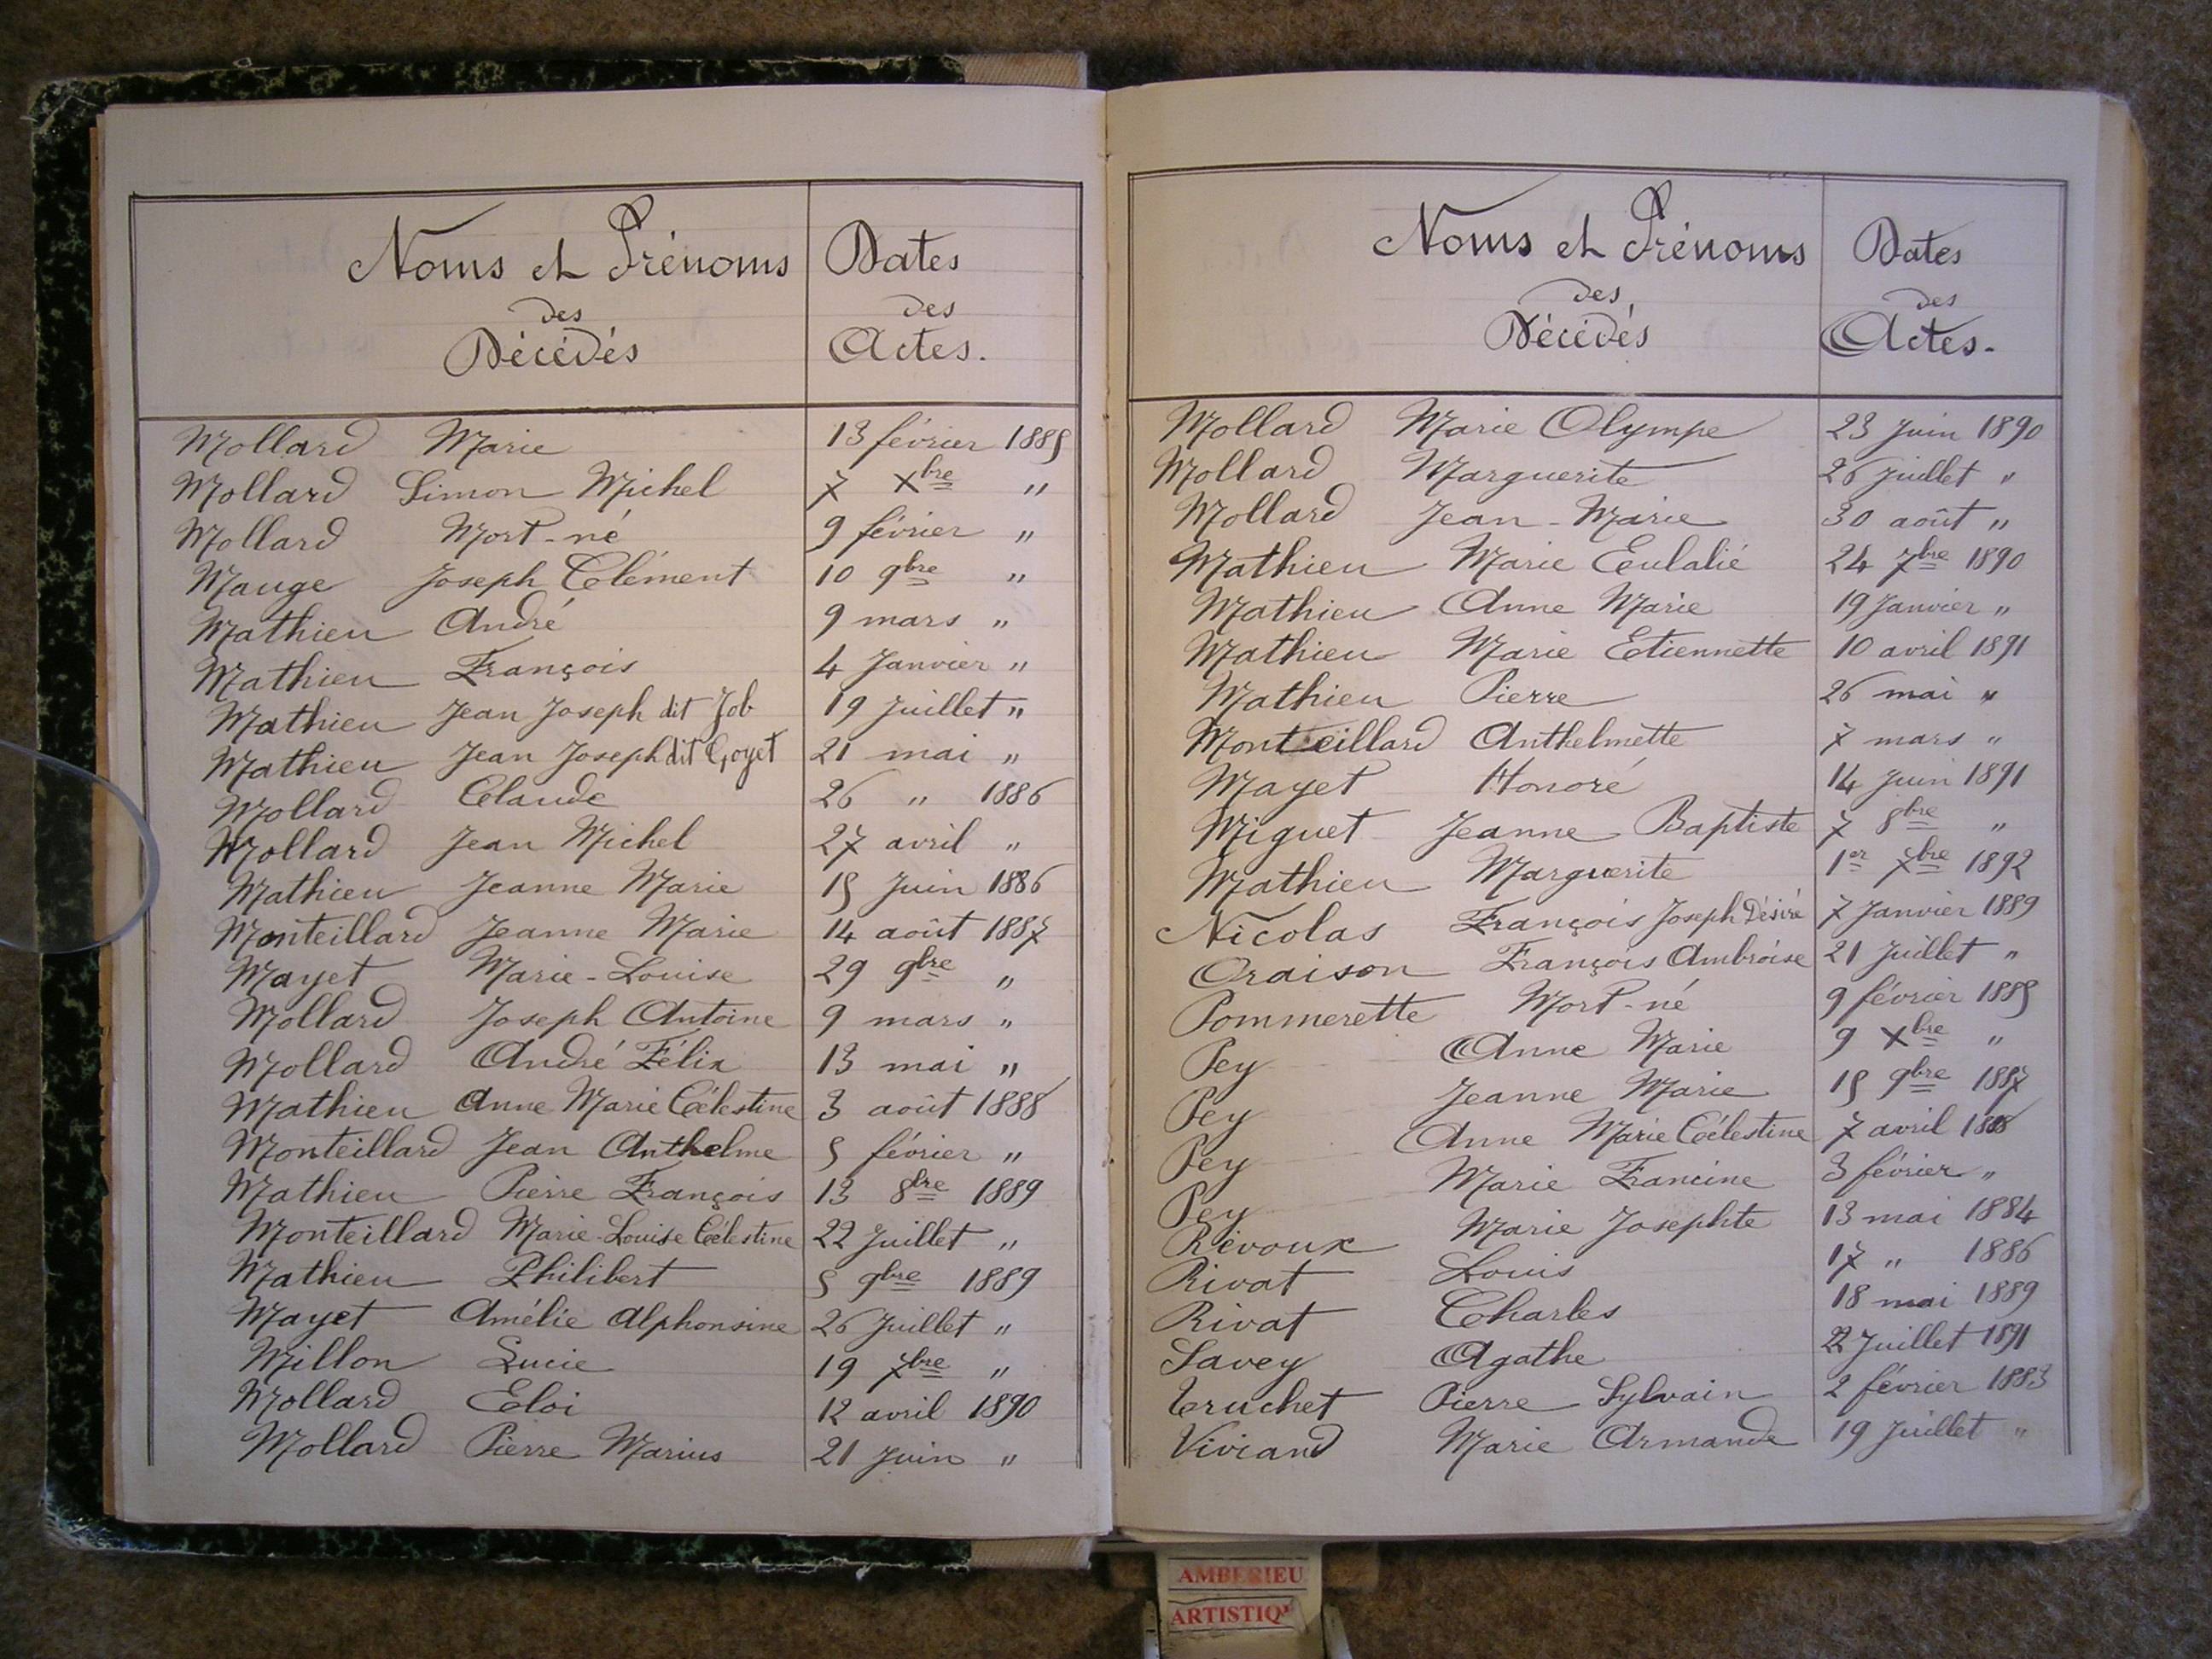 Noms et Prénoms
des
Décédés
Dates
des
Actes.
Mollard Marie 13 février 1885
Mollard Simon Michel 7 Xbre "
Mollard Mort-né 9 février "
Mauge Joseph Clément 10 9bre "
Mathieu André 9 mars "
Mathieu François 4 Janvier "
Mathieu Jean Joseph dit Job 19 Juillet "
Mathieu Jean Joseph dit Goyet 21 mai "
Mollard Claude 26 " 1886
Mollard Jean Michel 27 avril "
Mathieu Jeanne Marie 15 Juin 1886
Monteillard Jeanne Marie 14 août 1887
Mayet Marie-Louise 29 9bre "
Mollard Joseph Antoine 9 mars "
Mollard André Félix 13 mai "
Mathieu Anne Marie Célestine 3 août 1888
Monteillard Jean Anthelme 5 février "
Mathieu Pierre François 13 8bre 1889
Monteillard Marie-Louise Célestine 22 Juillet "
Mathieu Philibert 5 9bre 1889
Mayet Amélie Alphonsine 26 Juillet "
Millon Lucie 19 7bre "
Mollard Eloi 12 avril 1890
Mollard Pierre Marius 21 Juin "
Noms et Prénoms
des
Décédés
Dates
des
Actes.
Mollard Marie Olympe 23 Juin 1890
Mollard Marguerite 26 Juillet "
Mollard Jean-Marie 30 août "
Mathieu Marie Eulalié 24 7bre 1890
Mathieu Anne Marie 19 Janvier "
Mathieu Marie Etiennette 10 avril 1891
Mathieu Pierre 26 mai "
Monteillard Anthelmette 7 mars "
Mayet Honoré 14 Juin 1891
Miguet Jeanne Baptiste 7 8bre "
Mathieu Marguerite 1er Xbre 1892
Nicolas François Joseph Désiré 7 Janvier 1889
Oraison François Ambroise 21 Juillet "
Pommerette Mort-né 9 février 1885
Pey Anne Marie 9 Xbre "
Pey Jeanne Marie 15 9bre 1887
Pey Anne Marie Célestine 7 avril 1888
Pey Marie Francine 3 février "
Révoux Marie Josephte 13 mai 1884
Rivat Louis 17 " 1886
Rivat Charles 18 mai 1889
Savey Agathe 22 Juillet 1891
Truchet Pierre Sylvain 2 février 1883
Viviand Marie Armande 19 Juillet "
AMBERIEU
ARTISTIQ